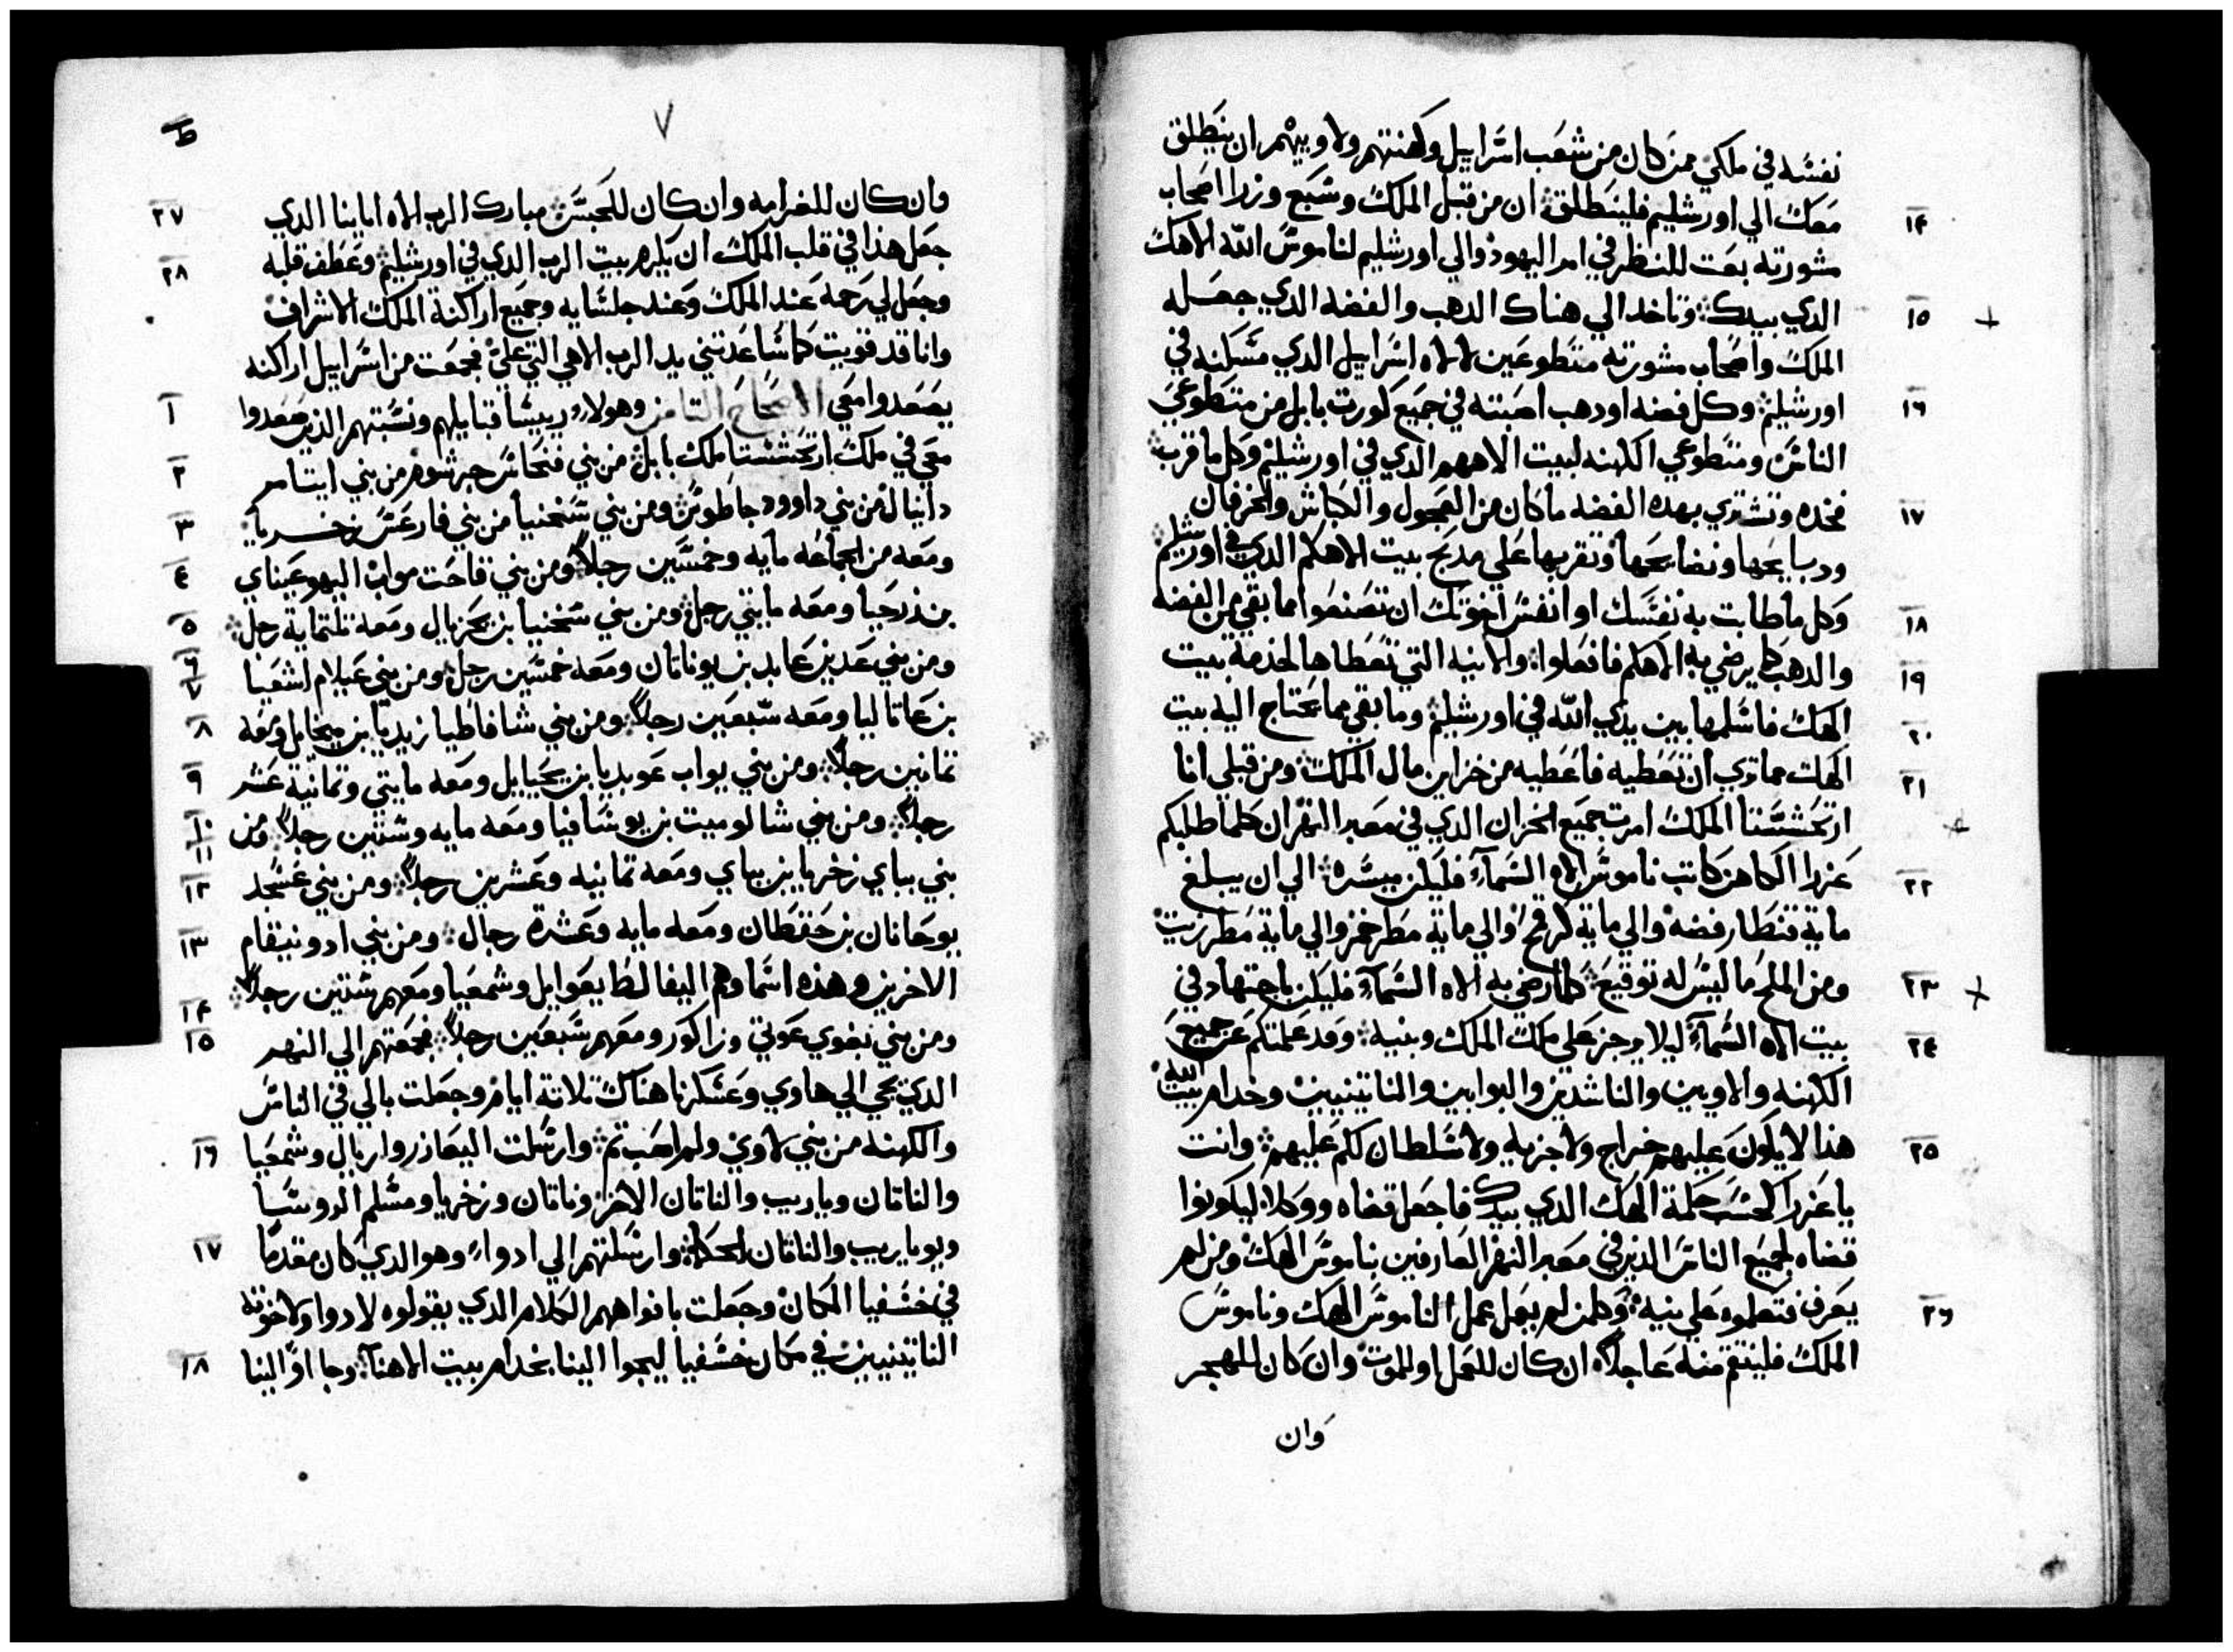 نفسه في ملكي ممن كان من شعب اسراييل وكهنتهم ولاوييهم ان ينطلق
معك الي اورشليم فلينطلق ان من قبل الملك وسبع وزرا اصحاب
١٤
مشورته بعت للنظر في امر اليهود والي اورشليم لناموس الله الاهك
الدي بيدك وتاخد الي هناك الدهب والفضه الدي جعله
١٥
الملك واصحاب مشورته متطوعين لالاه اسراييل الدي مسكنه في
اورشليم وكل فضه اودهب اصبته في جميع كورت بابل من متطوعي
١٦
الناس ومتطوعي الكهنه لبيت الاههم الدي في اورشليم وكل ما قرب
فخده وتشتري بهده الفضه ماكان من العجول والكباش والخرفان
١٧
ودبايحها ونضايحها وتقربها علي مدبح بيت الاهكم الدي في اورشليم
وكل ما طابت به نفسك او انفس اخوتك ان تصنعوا مما بقي من الفضه
١٨
والدهب كما يرضي به الاهكم فافعلوا والانيه التي تعطاها لخدمة بيت
١٩
الهك فاسلمها بين يدي الله في اورشليم وما بقي مما يحتاج اليه بيت
٢٠
الهك مما تري ان تعطيه فاعطيه من خزاين مال الملك ومن قبلي انا
٢١
ارتحشستا الملك امرت جميع الخزان الدي في معبر النهر ان كلما طلبكم
عزرا الكاهن كاتب ناموس الاه السماء فليكن ميسره الي ان يبلغ
٢٢
ماية قنطار فضه والي ماية كر قمح والي ماية مطر خمر والي ماية مطر زيت
ومن الملح ما ليس له توقيع كلما رضي به الاه السماء فليكن باجتهاد في
٢٣
بيت الاه السماء ليلا يرجز علي ملك الملك وبنيه وقد علمتكم عن جميع
٢٤
الكهنه والاويين والناشدين والبوابين والناتينيين وخدام بيت الله
هذا لا يكون عليهم خراج ولا جزيه ولا سلطان لكم عليهم وانت
٢٥
يا عزرا كحسب حكمة الهك الدي بيدك فاجعل قضاه ووكلا ليكونوا
قضاه لجميع الناس الذين في معبر النهر العارفين بناموس الهك ومن لم
يعرف فتعلموه علي بنيه وكلمن لم يعمل عمل الناموس الهك وناموس
٢٦
الملك فلينتقم منه عاجلا ان كان للعمل او للموت وان كان للهجر
وان
٧
ط
وان كان للغرامه وان كان للحبس مبارك الرب الاه اباينا الدي
٢٧
جعل هذا في قلب الملك ان يكرم بيت الرب الدي في اورشليم وعطف قلبه
٢٨
وجعل لي رحمه عند الملك وعند جلسايه وجميع اراكنة الملك الاشراف
وانا قد قويت كما ساعدتني يد الرب الاهي التي علي فجمعت من اسراييل اراكنه
يصعدوا معي الاصحاح التامن وهولا ريسا قبايلهم ونسبتهم الذين صعدوا
١
معي في ملك ارتحشستا ملك بابل من بني فنحاس جرشوم من بني ايتامر
٢
دانيال من بني داوود جاطوس ومن بني سخنيا من بني فارعس زخريا
٣
ومعه من الجماعه مايه وخمسين رجلا ومن بني فاحت مواب اليهوعيناي
٤
بن ذرحيا ومعه مايتي رجل ومن بني سخنيا بن يحزيال ومعه تلتماية رجل
٥
ومن بني عدين عابد بن يوناتان ومعه خمسين رجل ومن بني عيلام اشعيا
٦
٧
بن عاتاليا ومعه سبعين رجلا ومن بني شافاطيا زبديا بن ميخايل ومعه
٨
تمانين رجلا ومن بني يواب عوبديا بن يحيايل ومعه مايتي وتمانية عشر
٩
رجلا ومن بني شالوميت بن يوسافيا ومعه مايه وستين رجلا ومن
١٠
١١
بني بباي زخريا بن بباي ومعه تمانيه وعشرين رجلا ومن بني عسجد
١٢
يوحانان بن حقطان ومعه مايه وعشرة رجال ومن بني ادونيقام
١٣
الاخرين وهذه اسماوهم اليفالط يعوايل وشمعيا ومعهم ستين رجلا
١٤
ومن بني بغوي عوتي وزاكور ومعهم سبعين رجلا فجمعتهم الي النهر
١٥
الدي يجي الي هاوي وعسكرنا هناك تلاتة ايام وجعلت بالي في الناس
والكهنه من بني لاوي ولم اصب تم وارسلت اليعازر واريال وشمعيا
١٦
والناتان وياريب والناتان الاخر وناتان وزخريا ومسلم الروسا
ويوياريب والناتان الحكما وارسلتهم الي ادواء وهو الدي كان مقدما
١٧
في خسفيا المكان وجعلت بافواههم الكلام الدي يقولوه لادوا ولاخوته
الناتينيين في مكان خسفيا ليجوا الينا بخدام بيت الاهنا وجا او الينا
١٨